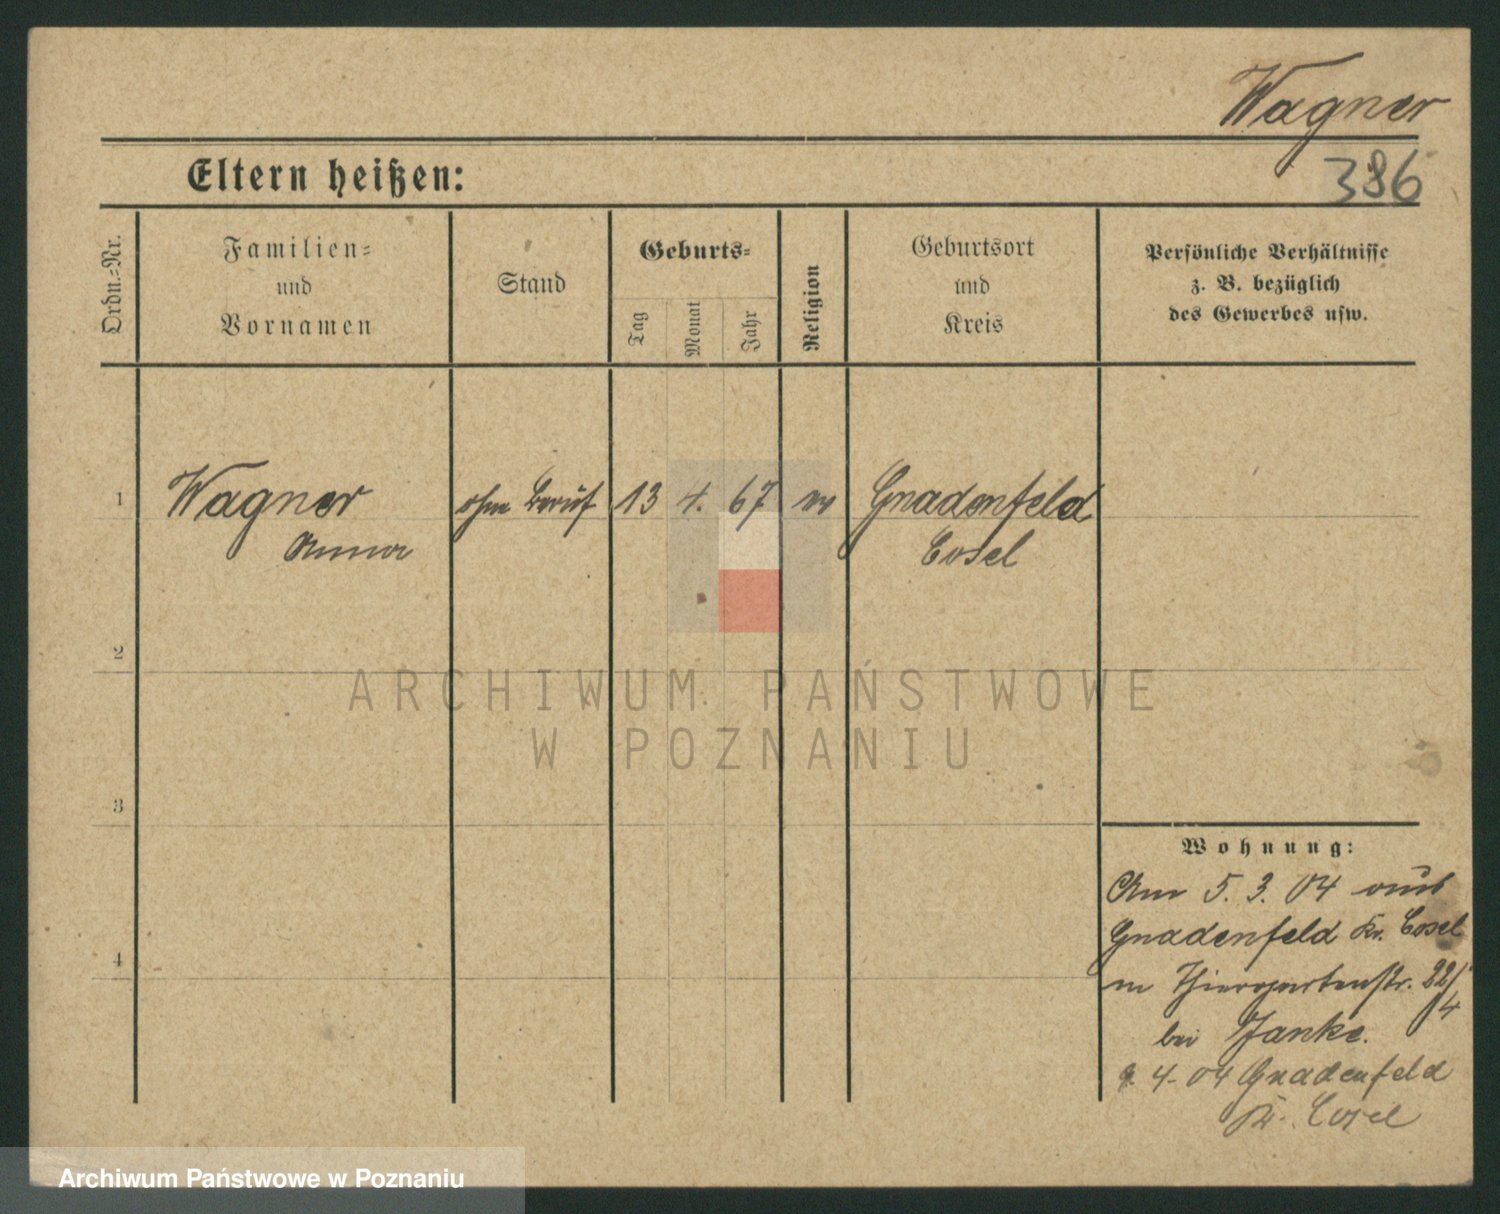 Wagner
386
Eltern heißen:
Ordn.=Nr.
Familien=
und
Vornamen
Stand
Geburts=
Tag
Monat
Jahr
Religion
Geburtsort
und
Kreis
Persönliche Verhältnisse
z. B. bezüglich
des Gewerbes usw.
1 Wagner ohne Beruf 13 4. 67 ev Gnadenfeld
Anna Cosel
2
ARCHIWUM PAŃSTWOWE
W POZNANIU
3
Wohnung:
Am 5. 3. 04 aus
Gnadenfeld Kr. Cosel
4
n Thiergartenstr. 22/4
bei Janke.
4. 04 Gnadenfeld
Kr. Cosel
Archiwum Państwowe w Poznaniu